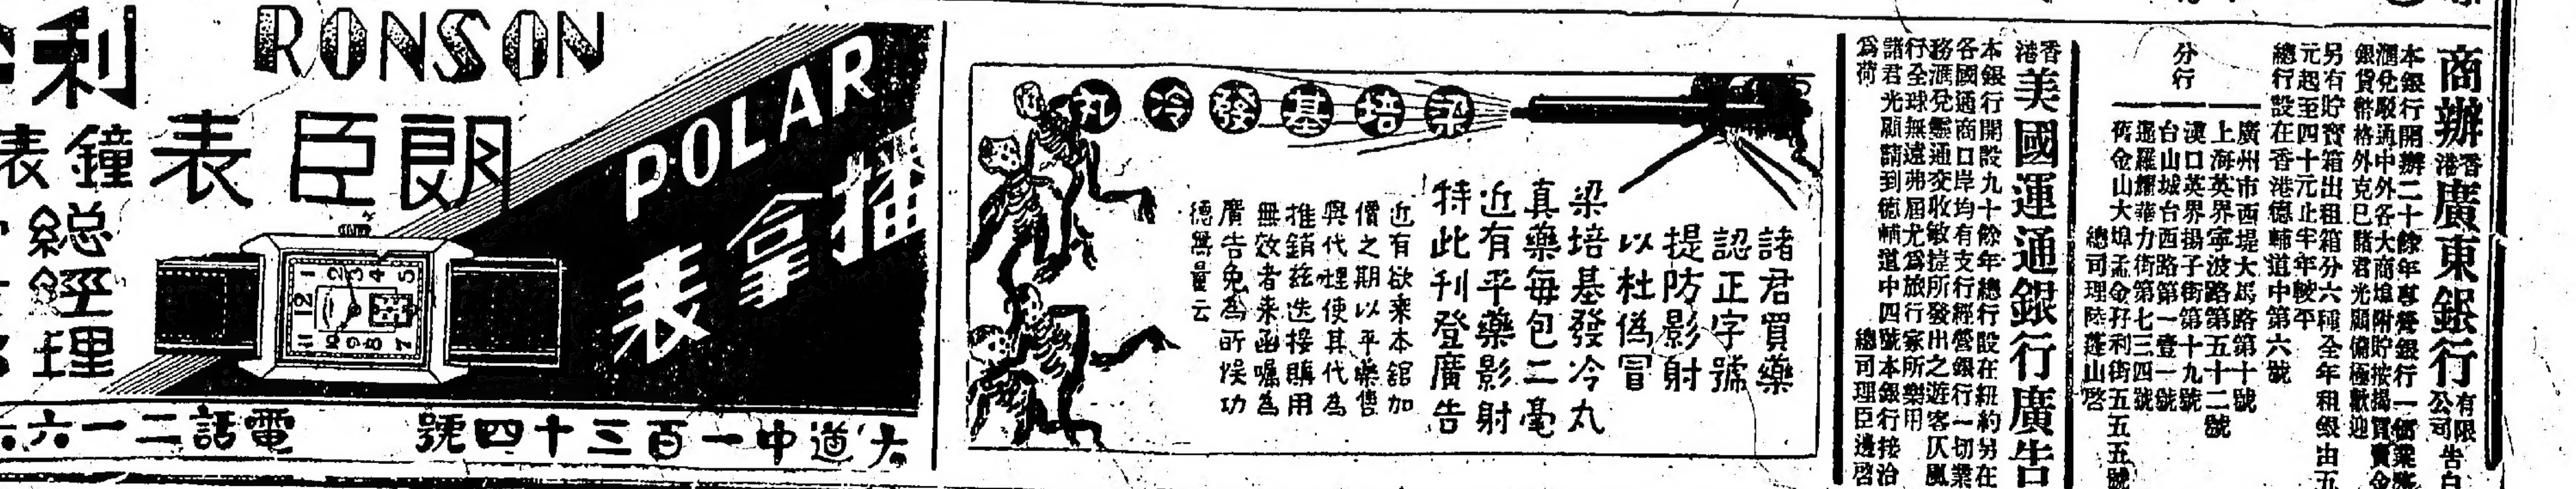 商辦香港廣東銀行有限公司告白
本銀行開辦二十餘年專營銀行一切業務
滙兌駁通中外各大商埠附貯按揭買賣金
銀貨幣格外克己諸君光顧僃極歡迎
另有貯寶箱出租箱分六種全年租銀由五
元起至四十元止半年較平
總行設在香港德輔道中第六號
分行
廣州市西堤大馬路第十號
上海英界寧波路第五十二號
漢口英界揚子街第十九號
台山城台西路第一壹一號
暹羅耀華力街第七三四號
舊金山大埠孟金孖利街五五五號
總司理陸蓬山啓
香港美國運通銀行廣告
本銀行開設九十餘年總行設在紐約另在
各國通商口岸均有支行經營銀行一切業
務滙兌靈通交收敏捷所發出之遊客仄風
行全球無遠弗屆尤為旅行家所樂用
諸君光顧請到德輔道中四號本銀行接洽
為荷
總司理臣邊啓
梁培基發冷丸
諸君買藥
認正字號
提防影射
以杜偽冒
梁培基發冷丸
真藥每包二毫
近有平藥影射
特此刊登廣告
近有欲乘本舘加
價之期以平藥售
與代理使其代為
推銷茲迭接購用
無效者來函囑為
廣告免為所悞功
德無量云
RONSON
朗臣表
POLAR
拿表
利
鐘表
總經理
大道中一百三十四號
電話二一六六